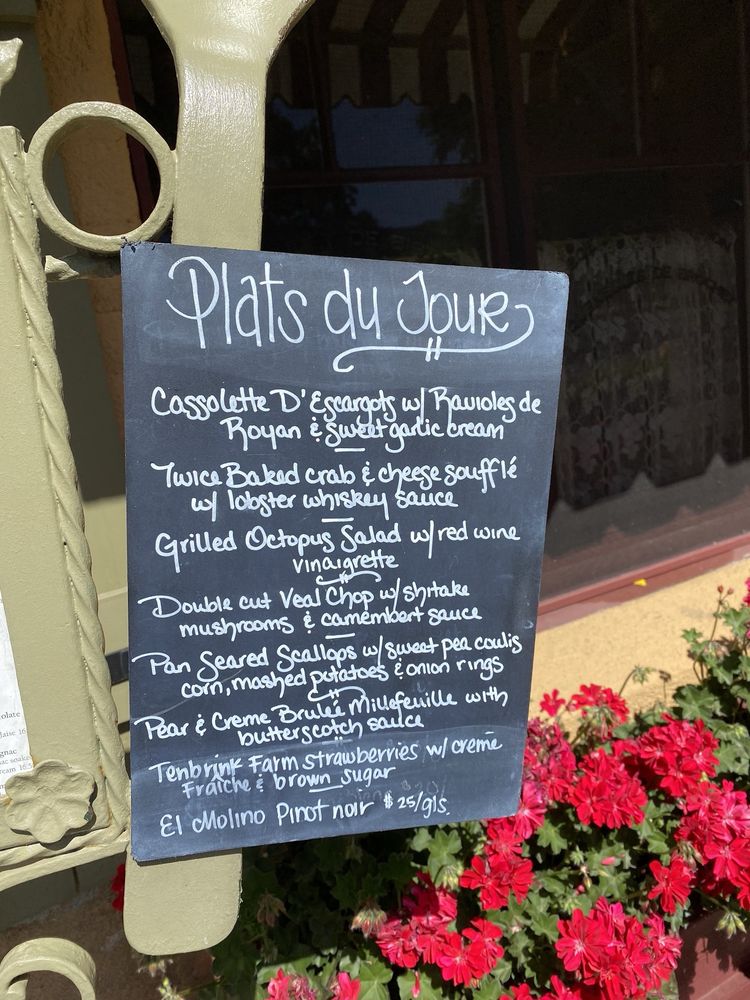 Plats du Jour
Cassolette D'Escargots w/ Ravioles de
Royan & sweet garlic cream
Twice Baked crab & cheese soufflé
w/ lobster whiskey sauce
Grilled Octopus Salad w/ red wine
vinaigrette
Double cut Veal Chop w/ shitake
mushrooms & camembert sauce
Pan Seared Scallops w/ sweet pea coulis
corn, mashed potatoes & onion rings
Pear & Creme Brulée Millefeuille with
butterscotch sauce
Tenbrink Farm strawberries w/ creme
Fraîche & brown sugar
El Molino Pinot noir $25/gls.
colate
laise 16
gnac
ream 16.5